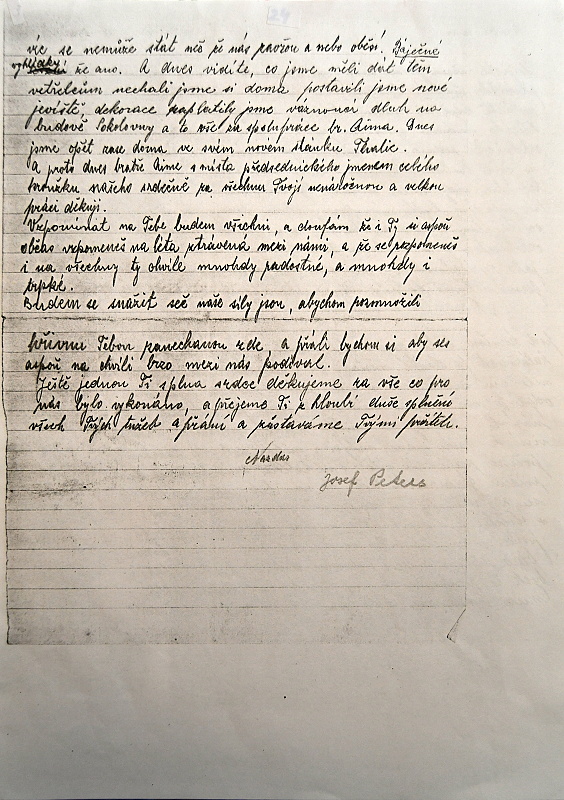 24
víc se nemůže stát než že nás zavřou a nebo oběsí. Báječné
vyhlídky že ano. A dnes vidíte, co jsme měli dát těm
vetřelcům nechali jsme si doma postavili jsme nové
jeviště, dekorace zaplatily jsme váznoucí dluh na
budově Sokolovny a to vše za spolupráce br. Aima. Dnes
jsme opět zase doma ve svém novém stánku Thalie.
A proto dnes bratře Aime s místa předsednického jmenem celého
kroužku našeho srdečně za všechnu Tvoji nenáročnou a velkou
práci děkuji.
Vzpomínat na Tebe budem všichni, a doufám že i Ty si aspoň
občas vzpomeneš na léta ztrávená mezi námi, a že se rozpomeneš
i na všechny ty chvíle mnohdy radostné, a mnohdy i
trpké.
Budem se snažit seč naše síly jsou, abychom rozmnožili
hřivnu Tebou zanechanou zde, a přáli bychom si aby ses
aspoň na chvíli brzo mezi nás podíval.
Ještě jednou Ti z plna srdce děkujeme za vše co pro
nás bylo vykonáno, a přejeme Ti z hloubi duše splnění
všech Tvých tužeb a přání a zůstáváme Tvými přáteli.
Nazdar
Josef Peters